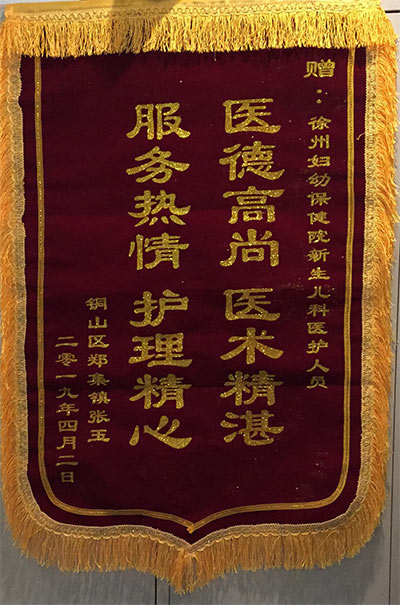 赠：徐州妇幼保健院新生儿科医护人员
医德高尚 医术精湛
服务热情 护理精心
铜山区郑集镇张玉
二零一九年四月二日